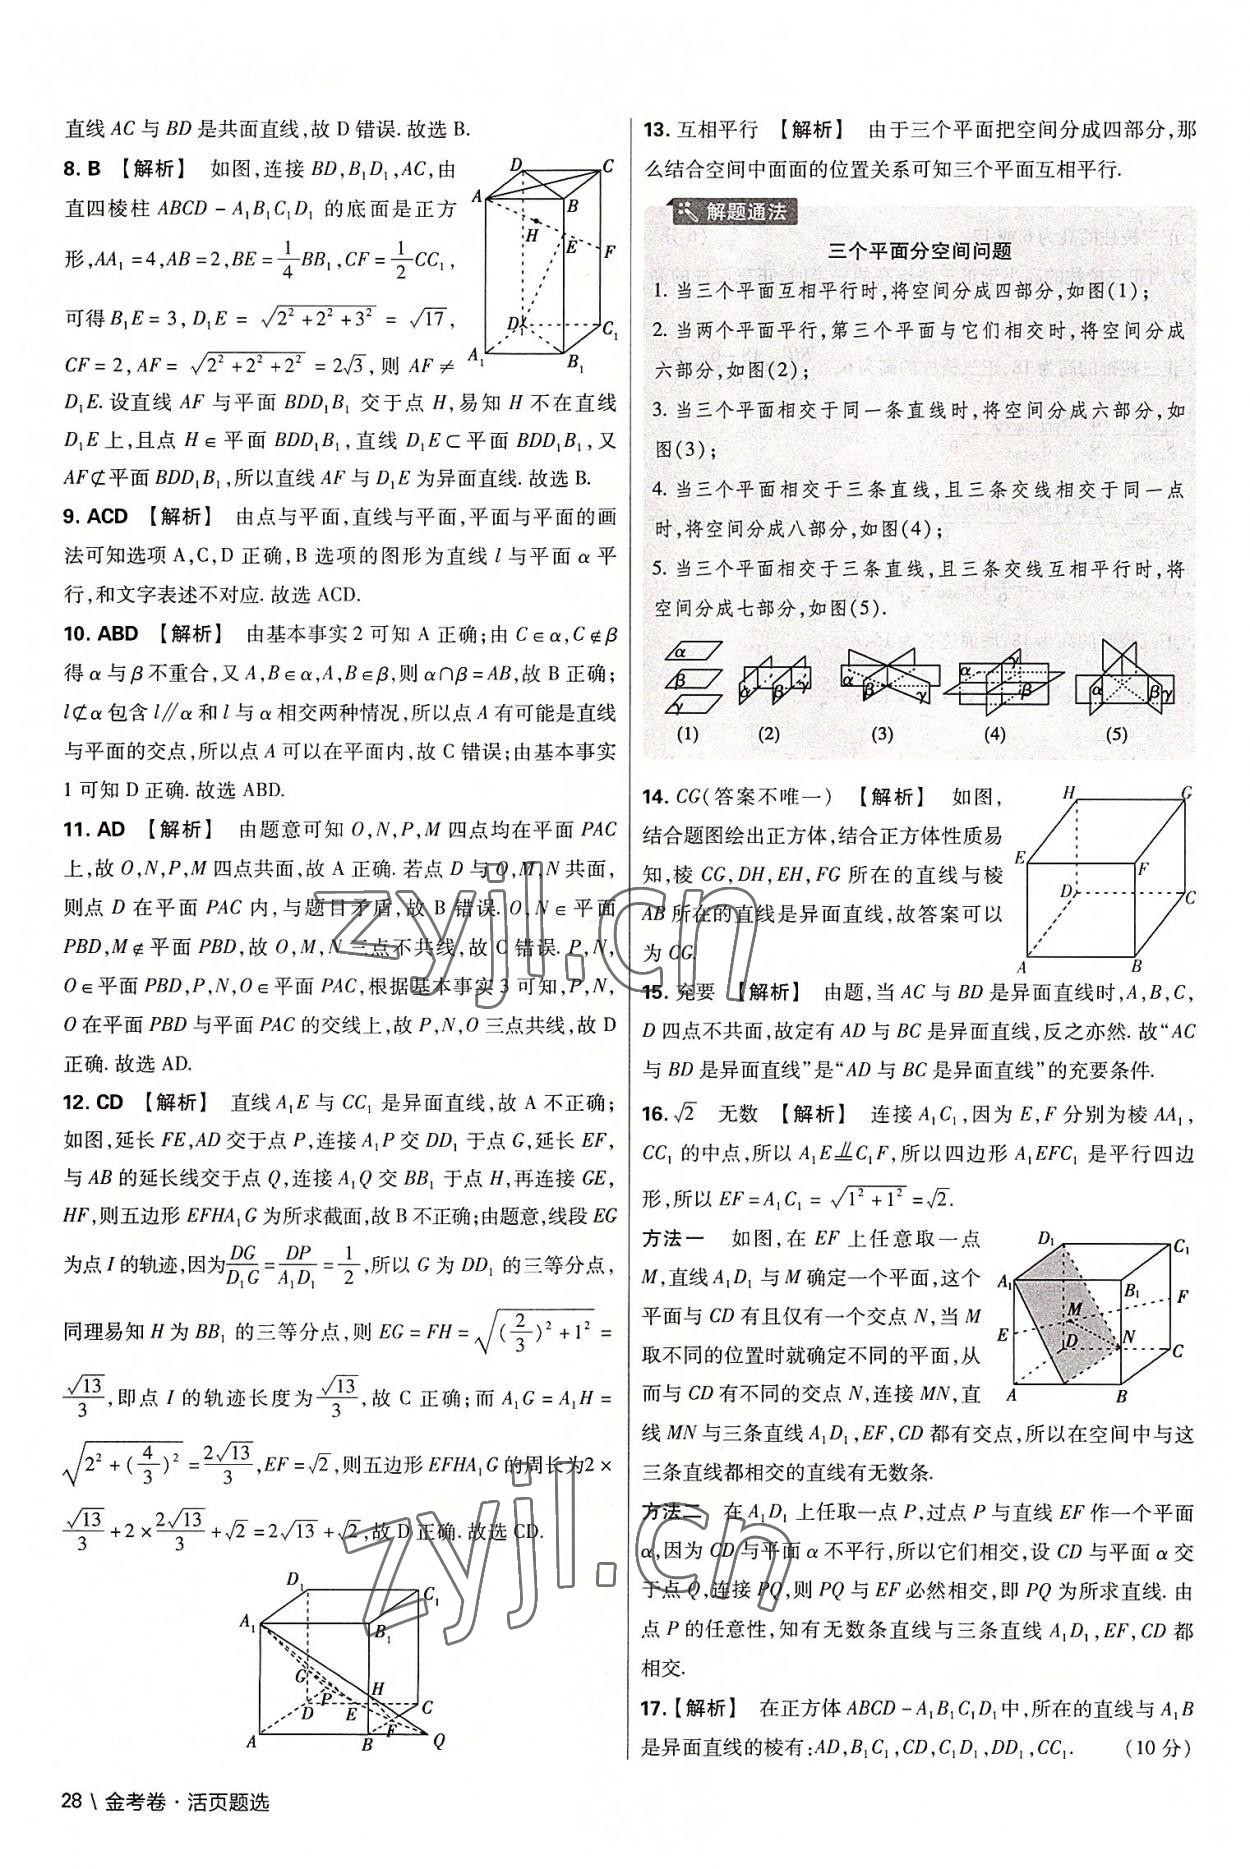 直线 AC 与 BD 是共面直线,故 D 错误.故选 B.
8. B 【解析】 如图,连接 BD,B₁D₁,AC,由
直四棱柱 ABCD－A₁B₁C₁D₁ 的底面是正方
形,AA₁=4,AB=2,BE=1/4BB₁,CF=1/2CC₁,
可得 B₁E=3, D₁E=√(2²+2²+3²)=√17,
CF=2,AF=√(2²+2²+2²)=2√3,则 AF≠
D₁E.设直线 AF 与平面 BDD₁B₁ 交于点 H,易知 H 不在直线
D₁E 上,且点 H∈平面 BDD₁B₁,直线 D₁E⊂平面 BDD₁B₁,又
AF⊄平面 BDD₁B₁,所以直线 AF 与 D₁E 为异面直线.故选 B.
D C A B H E F D₁ C₁ A₁ B₁
9. ACD 【解析】 由点与平面,直线与平面,平面与平面的画
法可知选项 A,C,D 正确,B 选项的图形为直线 l 与平面 α 平
行,和文字表述不对应.故选 ACD.
10. ABD 【解析】 由基本事实2 可知 A 正确;由 C∈α,C∉β
得 α 与 β 不重合,又 A,B∈α,A,B∈β,则 α∩β=AB,故 B 正确;
l⊄α 包含 l∥α 和 l 与 α 相交两种情况,所以点 A 有可能是直线
与平面的交点,所以点 A 可以在平面内,故 C 错误;由基本事实
1 可知 D 正确.故选 ABD.
11. AD 【解析】 由题意可知 O,N,P,M 四点均在平面 PAC
上,故 O,N,P,M 四点共面,故 A 正确. 若点 D 与 O,M,N 共面,
则点 D 在平面 PAC 内,与题目矛盾,故 B 错误. O,N∈平面
PBD,M∉平面 PBD,故 O,M,N 三点不共线,故 C 错误. P,N,
O∈平面 PBD,P,N,O∈平面 PAC,根据基本事实 3 可知,P,N,
O 在平面 PBD 与平面 PAC 的交线上,故 P,N,O 三点共线,故 D
正确.故选 AD.
12. CD 【解析】 直线 A₁E 与 CC₁ 是异面直线,故 A 不正确;
如图,延长 FE,AD 交于点 P,连接 A₁P 交 DD₁ 于点 G,延长 EF,
与 AB 的延长线交于点 Q,连接 A₁Q 交 BB₁ 于点 H,再连接 GE,
HF,则五边形 EFHA₁G 为所求截面,故 B 不正确;由题意,线段 EG
为点 I 的轨迹,因为DG/D₁G=DP/A₁D₁=1/2,所以 G 为 DD₁ 的三等分点,
同理易知 H 为 BB₁ 的三等分点,则 EG=FH=√((2/3)²+1²)=
√13/3,即点 I 的轨迹长度为√13/3,故 C 正确;而 A₁G=A₁H=
√(2²+(4/3)²)=2√13/3,EF=√2,则五边形 EFHA₁G 的周长为2×
√13/3+2×2√13/3+√2=2√13+√2,故 D 正确.故选 CD.
D₁ C₁ A₁ B₁ G H P D E C F A B Q
28 \ 金考卷·活页题选
13. 互相平行 【解析】 由于三个平面把空间分成四部分,那
么结合空间中面面的位置关系可知三个平面互相平行.
解题通法
三个平面分空间问题
1. 当三个平面互相平行时,将空间分成四部分,如图(1);
2. 当两个平面平行,第三个平面与它们相交时,将空间分成
六部分,如图(2);
3. 当三个平面相交于同一条直线时,将空间分成六部分,如
图(3);
4. 当三个平面相交于三条直线,且三条交线相交于同一点
时,将空间分成八部分,如图(4);
5. 当三个平面相交于三条直线,且三条交线互相平行时,将
空间分成七部分,如图(5).
α β γ α β γ α β γ α γ β α β γ
(1) (2) (3) (4) (5)
14. CG(答案不唯一) 【解析】 如图,
结合题图绘出正方体,结合正方体性质易
知,棱 CG,DH,EH,FG 所在的直线与棱
AB 所在的直线是异面直线,故答案可以
为 CG.
H G E F D C A B
15. 充要 【解析】 由题,当 AC 与 BD 是异面直线时,A,B,C,
D 四点不共面,故定有 AD 与 BC 是异面直线,反之亦然. 故“AC
与 BD 是异面直线”是“AD 与 BC 是异面直线”的充要条件.
16. √2 无数 【解析】 连接 A₁C₁,因为 E,F 分别为棱 AA₁,
CC₁ 的中点,所以 A₁E⫫C₁F,所以四边形 A₁EFC₁ 是平行四边
形,所以 EF=A₁C₁=√(1²+1²)=√2.
方法一 如图,在 EF 上任意取一点
M,直线 A₁D₁ 与 M 确定一个平面,这个
平面与 CD 有且仅有一个交点 N,当 M
取不同的位置时就确定不同的平面,从
而与 CD 有不同的交点 N,连接 MN,直
线 MN 与三条直线 A₁D₁,EF,CD 都有交点,所以在空间中与这
三条直线都相交的直线有无数条.
D₁ C₁ A₁ B₁ M F E D N C A B
方法二 在 A₁D₁ 上任取一点 P,过点 P 与直线 EF 作一个平面
α,因为 CD 与平面 α 不平行,所以它们相交,设 CD 与平面 α 交
于点 Q,连接 PQ,则 PQ 与 EF 必然相交,即 PQ 为所求直线. 由
点 P 的任意性,知有无数条直线与三条直线 A₁D₁,EF,CD 都
相交.
17. 【解析】 在正方体 ABCD－A₁B₁C₁D₁ 中,所在的直线与 A₁B
是异面直线的棱有:AD,B₁C₁,CD,C₁D₁,DD₁,CC₁. (10 分)
zyjl.cn
zyjl.cn